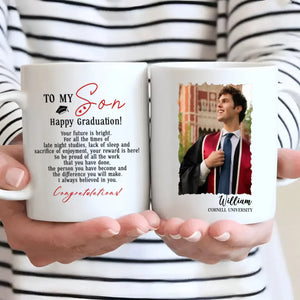 TO MY Son
Happy Graduation!
Your future is bright.
For all the times of
late night studies, lack of sleep and
sacrifice of enjoyment, your reward is here!
to be proud of all the work
that you have done,
the person you have become and
the difference you will make.
I always believed in you.
Congratulations!
William
CORNELL UNIVERSITY